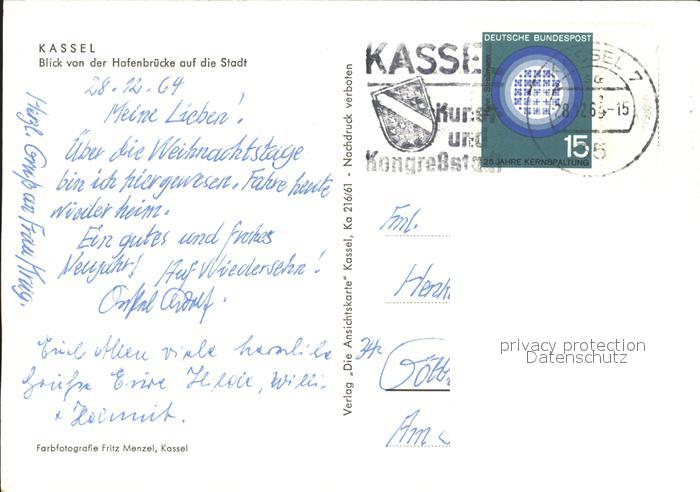 KASSEL
Blick von der Hafenbrücke auf die Stadt
28.12.64
Meine Lieben!
Über die Weihnachtstage
bin ich hier gewesen. Fahre heute
wieder heim.
Ein gutes und frohes
Neujahr! Auf Wiedersehn!
Onkel Adolf.
Herzl. Gruß an Frau
Euch Allen viele herzliche
Grüße Eure Hilde, Willi.
+ Helmut.
Farbfotografie Fritz Menzel, Kassel
Verlag „Die Ansichtskarte" Kassel, Ka 216/61 - Nachdruck verboten
KASSEL
Kunst-
und
Kongreßstadt
DEUTSCHE BUNDESPOST
15
25 JAHRE KERNSPALTUNG
KASSEL 7
28.12.64-15
Fml.
Am
privacy protection
Datenschutz